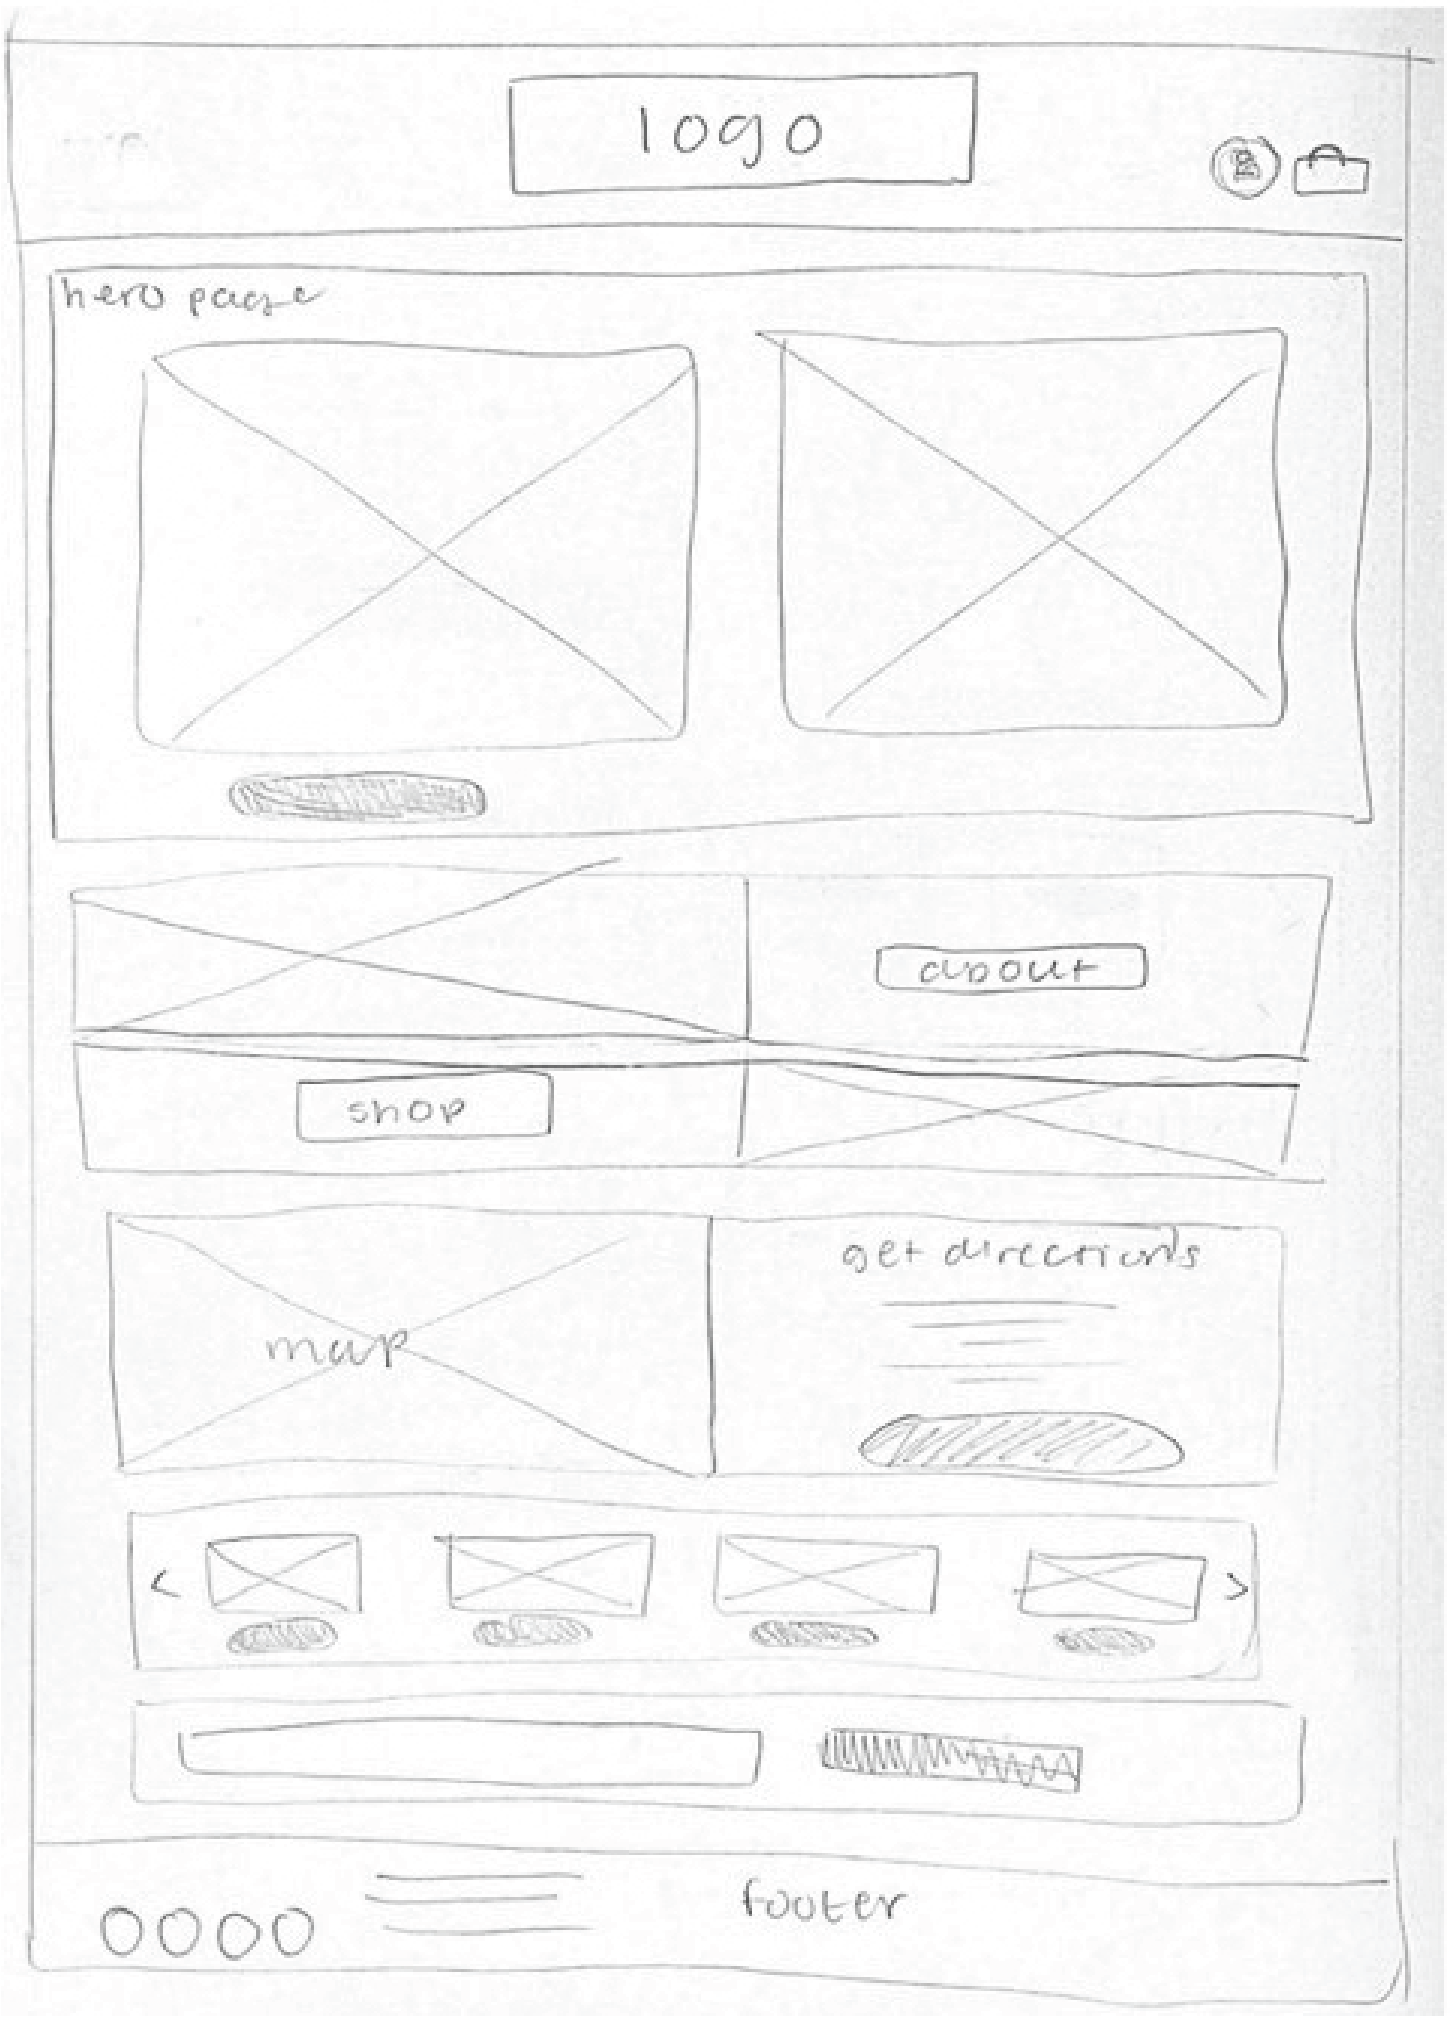 logo
hero page
about
shop
get directions
map
<
>
footer